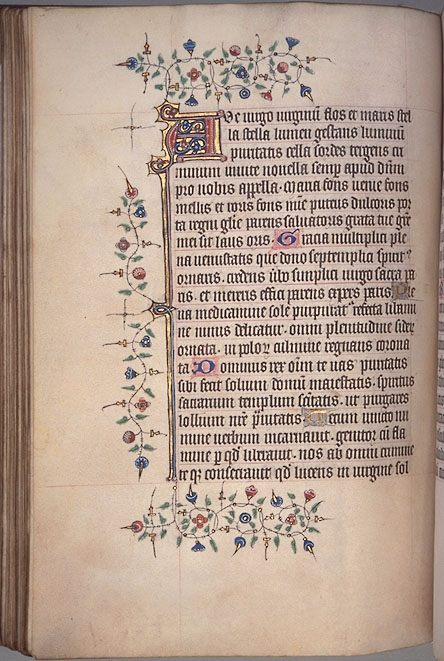 Ave virgo virginũ flos et maris stel
la stella lumen gestans luminũ
puritatis cella sordes tergens cri
minum novella semp apud dñm
pro nobis appella. Maria fons venie fons
mellis et roris fons mie puteus dulcoris por
ta regni glie parens salvatoris grata tue gre
mei sit laus oris. Gracia multiplici ple
na venustatis que dono septemplici spirit⁹
ornaris. credens simplici virgo sacra pa
ris. et mereris effici parens expers patris. Ple
na medicamine sole purpurata refecta libami
ne nimis delicata. omni plenitudine sider
ornata. in polor culmine regnans corona
ta. Dominus rex oĩm te vas puritatis
sibi fecit solium domũ maiestatis. spiritus
sacrarium templum sc̃itatis. ut purgares
lollium nr̃e pravitatis Tecum unico nu
mine verbum incarnavit. genitor cũ fla
mine p qd liberavit. nos ab omni crimine
te q consecravit qd lucens in virgine sol